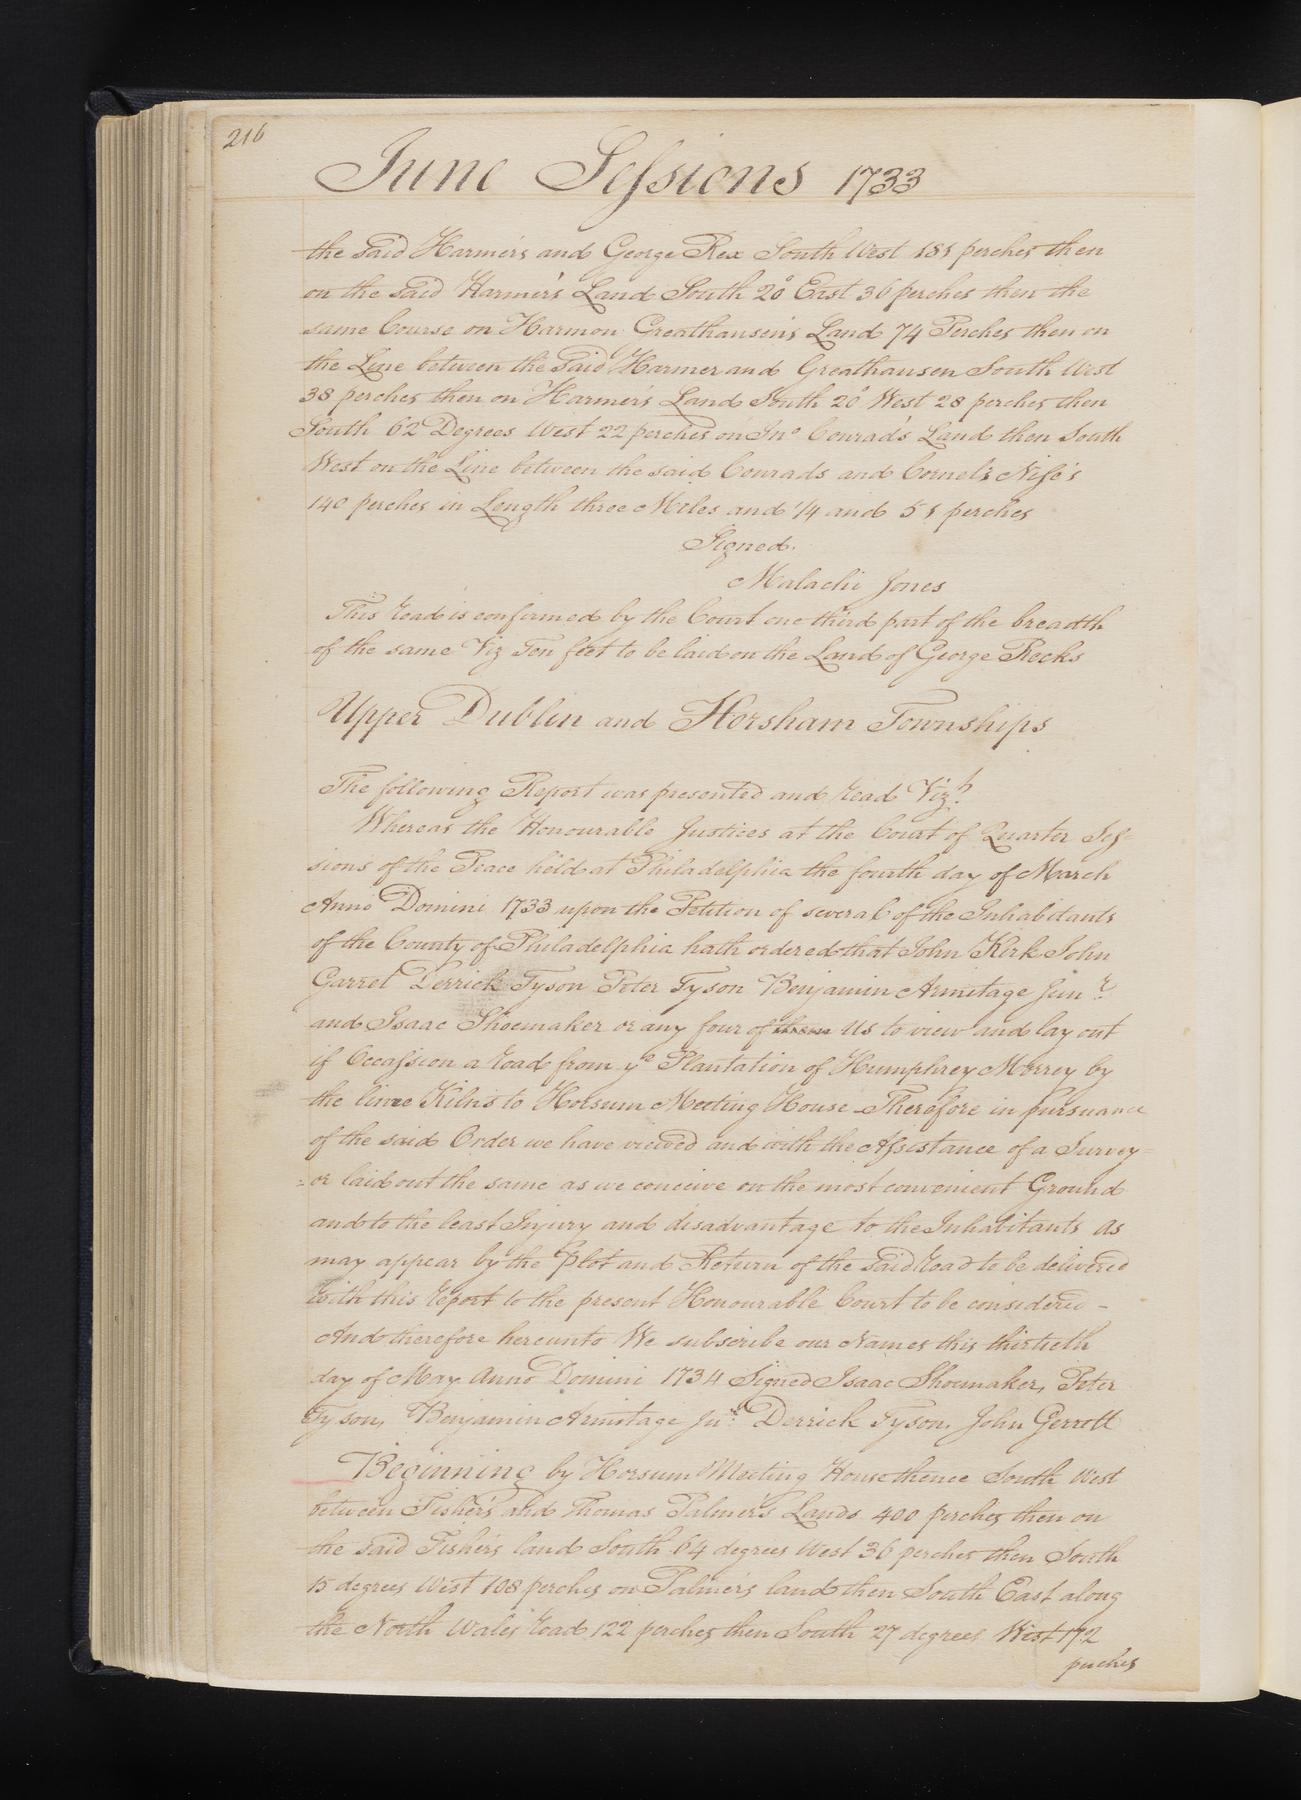 216
June Sessions 1733
the said Harmer's and George Rex South West 181 perches then
on the said Harmer's Land South 20° East 36 perches then the
same Course on Harmon Greathausen's Land 74 Perches then on
the Line between the said Harmer and Greathausen South West
38 perches then on Harmer's Land South 20° West 28 perches then
South 62 Degrees West 22 perches on Jno Conrad's Land then South
West on the Line between the said Conrads and Cornel's Nise's
140 perches in Length three Miles and 1/4 and 51 perches
Signed.
Malachi Jones
This road is confirmed by the Court one third part of the breadth
of the same Viz Ten feet to be laid on the Land of George Recks
Upper Dublin and Horsham Townships
The following Report was presented and read Vizt
Whereas the Honourable Justices at the Court of Quarter Ses-
sions of the Peace held at Philadelphia the fourth day of March
Anno Domini 1733 upon the Petition of several of the Inhabitants
of the County of Philadelphia hath ordered that John Kirk John
Garret Derrick Tyson Peter Tyson Benjamin Armitage Junr
and Isaac Shoemaker or any four of them Us to view and lay out
if Occassion a road from ye Plantation of Humphrey Morrey by
the lime Kilns to Horsum Meeting House Therefore in pursuance
of the said Order we have viewed and with the Assistance of a Survey=
=or laid out the same as we conceive on the most convenient Ground
and to the least Injury and disadvantage to the Inhabitants as
may appear by the Plot and Return of the said road to be delivered
with this report to the present Honourable Court to be considered -
And therefore hereunto We subscribe our Names this thirtieth
day of May Anno Domini 1734 Signed Isaac Shoemaker, Peter
Tyson, Benjamin Armitage Jur Derrick Tyson, John Gerrott
Beginning by Horsum Meeting House thence South West
between Fisher's and Thomas Palmer's Lands 400 perches then on
the said Fisher's land South 64 degrees West 36 perches then South
15 degrees West 108 perches on Palmer's land then South East along
the North Wales road 122 perches then South 27 degrees West 172
perches